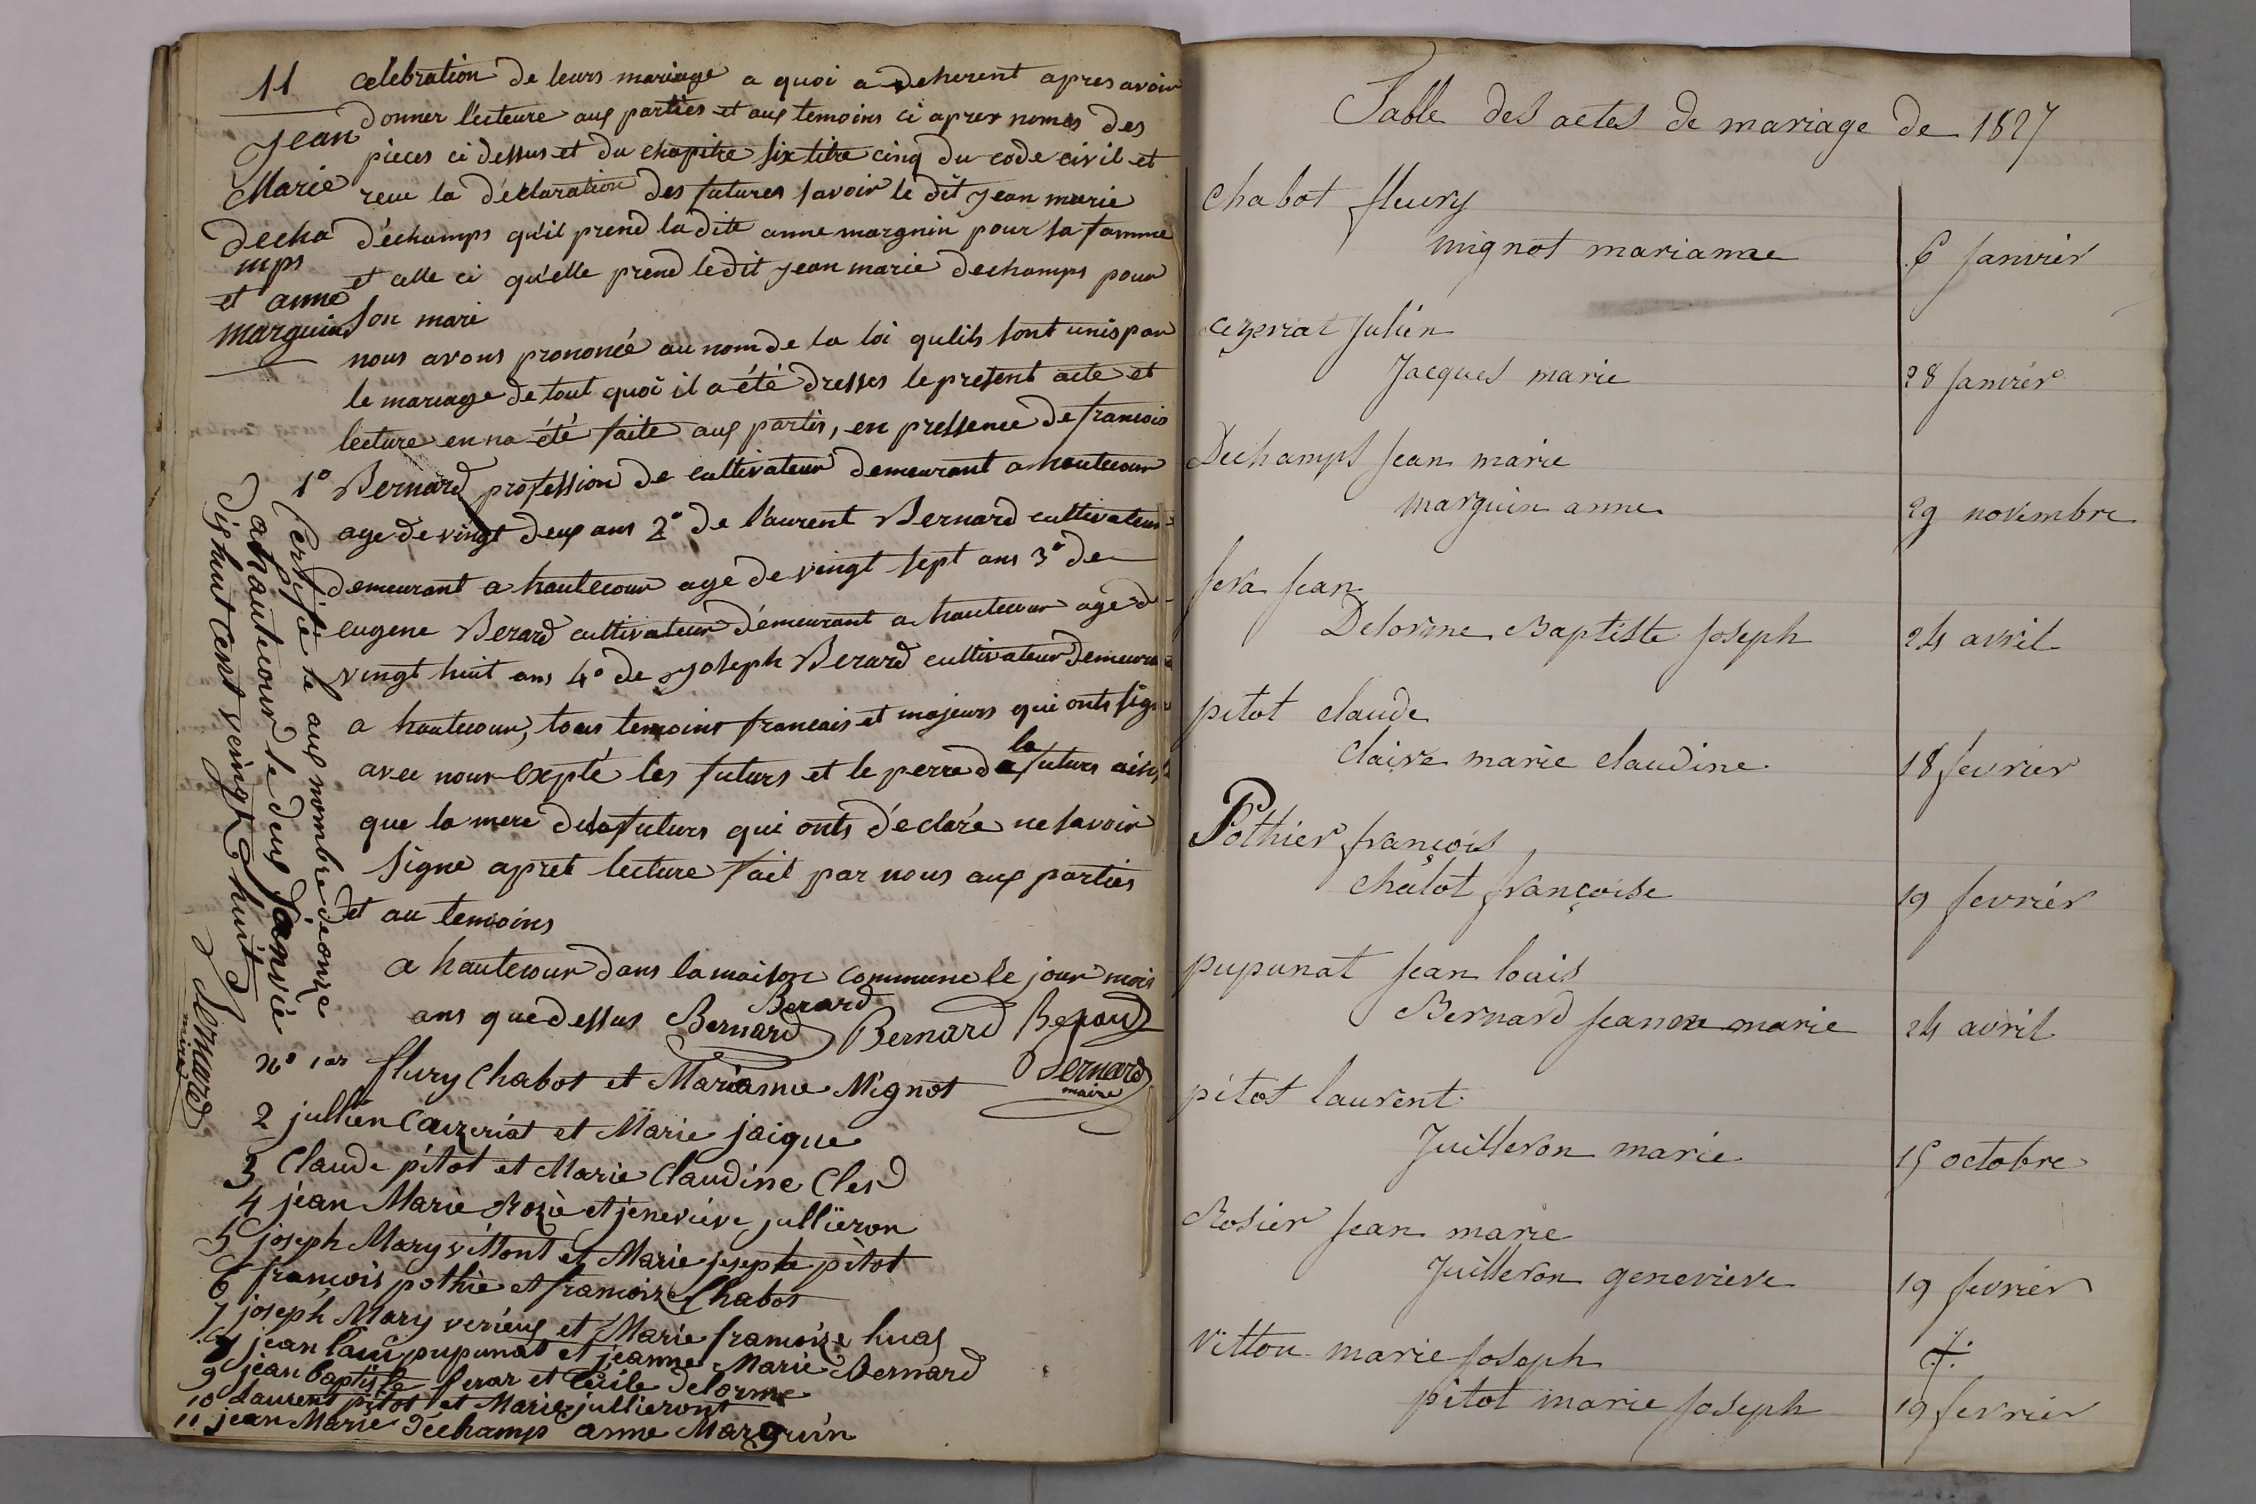 11
Jean
Marie
decha
mps
et anne
marguin
celebration de leurs mariage a quoi a deherent apres avoir
donner lecteure aux parties et aux temoins ci aprer només des
pieces ci dessus et du chapitre six titre cinq du code civil et
reçue la déclaration des futures savoir le dit jean marie
déchamps qu'il prend la dite anne marguin pour sa famme
et celle ci qu'elle prend le dit jean marie dechamps pour
son mari
nous avons prononcé au nom de la loi qulils sont unis par
le mariage de tout quoi il a été dresses le present acte et
lecture en na été faite aux partis, en pressence de francois
1° Bernard profession de cultivateur demeurant a hautecour
age de vingt deux ans 2° de laurent Bernard cultivateur
demeurant a hautecour age de vingt sept ans 3° de
eugene Berard cultivateur démeurant a hautecour age d
vingt huit ans 4° de joseph Berard cultivateur demeura
a hautecour, tous temoins francais et majeurs qui onts sign
avec nour expté les futurs et le perre de la futurs ainsi
que la mere de la futurs qui onts déclaré ne savoir
signe apret lecture fait par nous aux parties
et au temoins
a hautecour dans la maison commune le jour mois
ans que dessus Bernard Berard Bernard
Bernard
maire
Certifié le aux nombre de onze
a hautecour le deux janvié
dix huit cent veingt huit
Bernard
maire
n° 1er flury Chabot et Marianne Mignot
2 jullien Cauzeriat et Marie jaique
3 Claude pitot et Marie Claudine Cler
4 jean Marie Rozié et jenevieve jullïeron
5 joseph Mary vittont et Marie josepte pitot
6 françois pothie et françoize Chabot
7 joseph Mary verieux et Marie françoize huas
8 jean laui pupunat et jeanne Marie Bernard
9 jean baptiste ferar et Cécile delorme
10 Laurent pitot et Marie jullieront
11 jean Marie déchamps anne Marguin
Table des actes de mariage de 1827
Chabot fleury
mignot marianne 6 janvier
ceyzriat Julien
Jacques marie 28 janvier
Dechamps jean marie
marguin anne 29 novembre
fera jean
Delorme Baptiste Joseph 24 avril
pitot claude
claire marie claudine 18 fevrier
Pothier françois
chalot françoise 19 fevrier
pupunat jean louis
Bernard jeanne marie 24 avril
pitot laurent
Juilleron marie 15 octobre
Rosier jean marie
Juilleron genevieve 19 fevrier
Vittou marie joseph
pitot marie joseph 19 fevrier